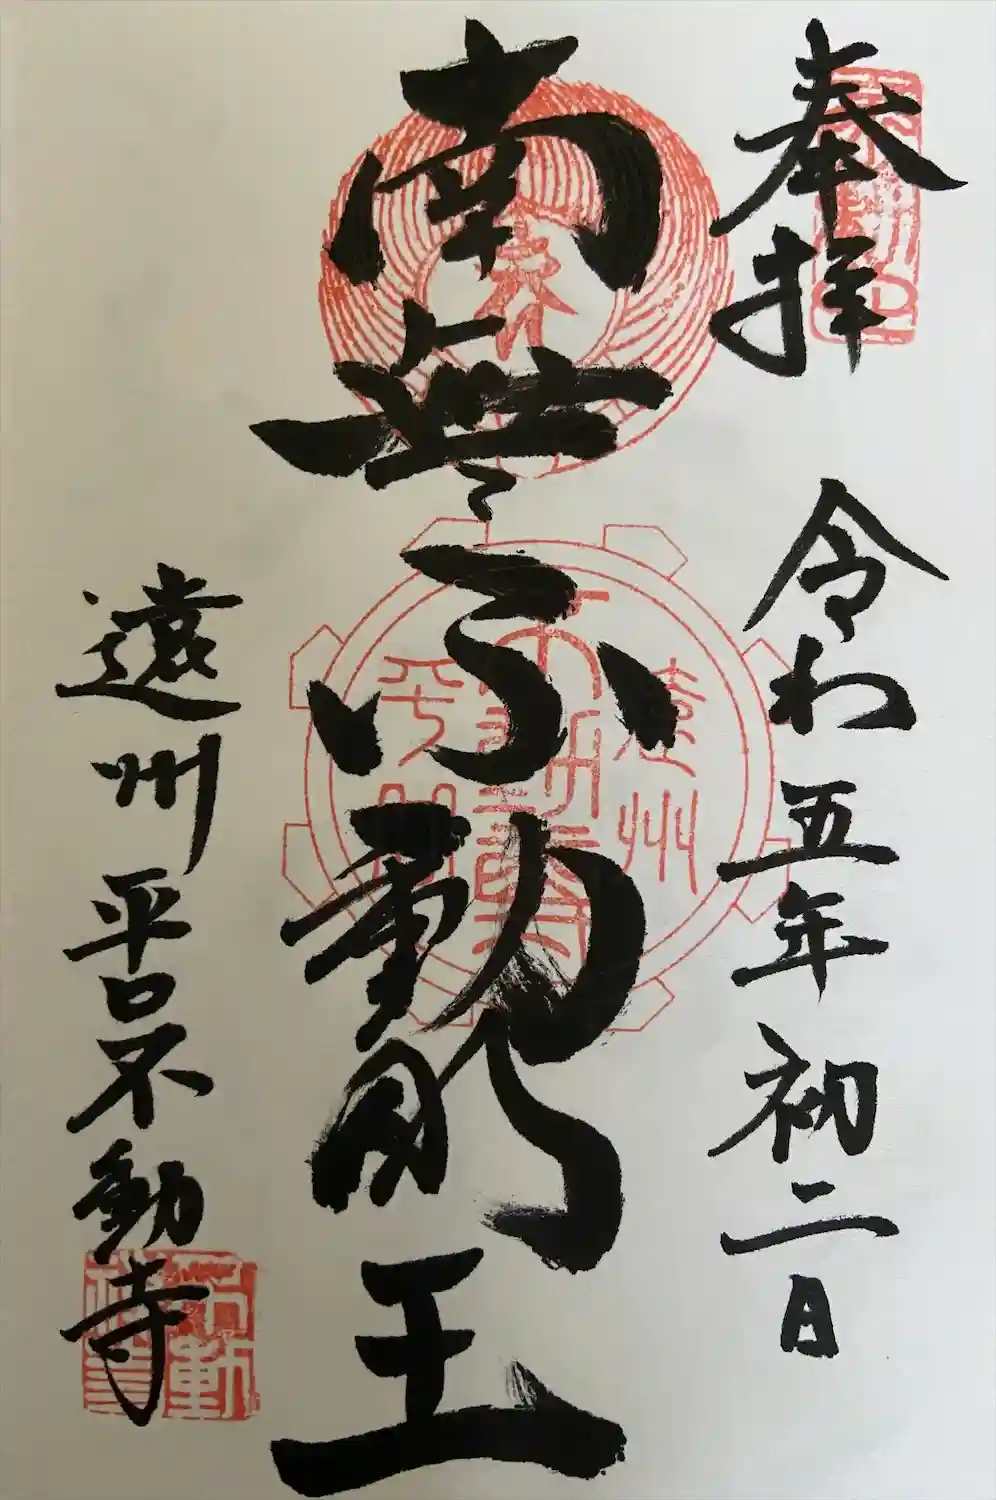 奉拝
令和五年初二日
南無不動明王
遠州
平口
遠州平口不動寺
不動